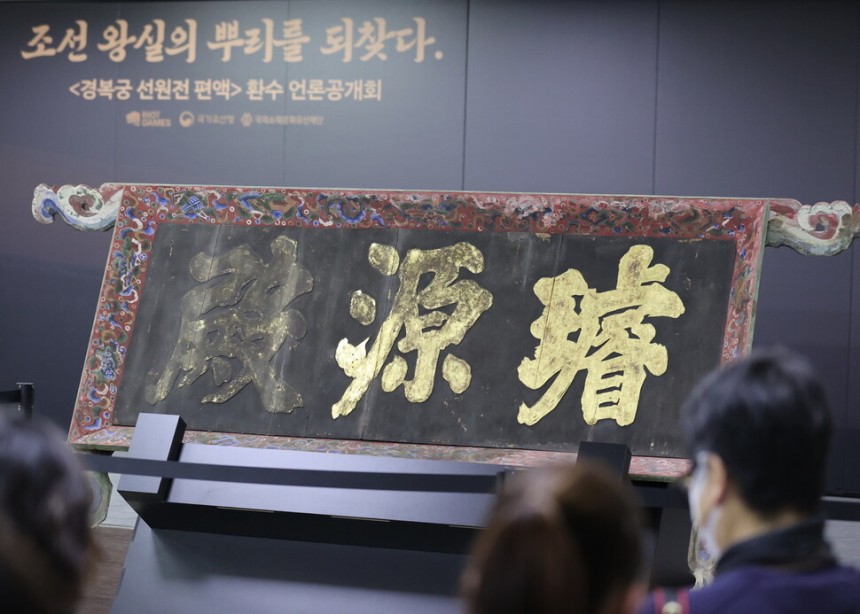 조선 왕실의 뿌리를 되찾다.
<경복궁 선원전 편액> 환수 언론공개회
RIOT GAMES 국가유산청 국외소재문화유산재단
璿源殿